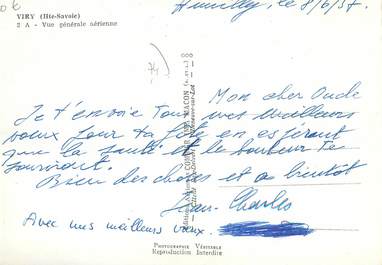 VIRY (Hte-Savoie)
2 A - Vue générale aérienne
le 8/6/57.
74
Mon cher Oncle
Je t'envoie tous mes meilleurs
vœux pour ta fête en espérant
que la santé et le bonheur te
souriront.
Bien des choses et a bientôt
Jean-Charles
Avec mes meilleurs vœux.
PHOTOGRAPHIE VÉRITABLE
Reproduction Interdite